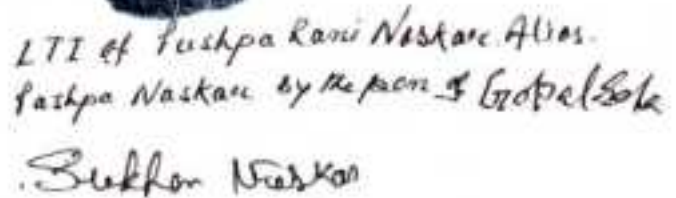 LTI of Pushpa Rani Naskar Alias.
Pushpa Naskar by the pen of Gopal
Sukhen Naskar